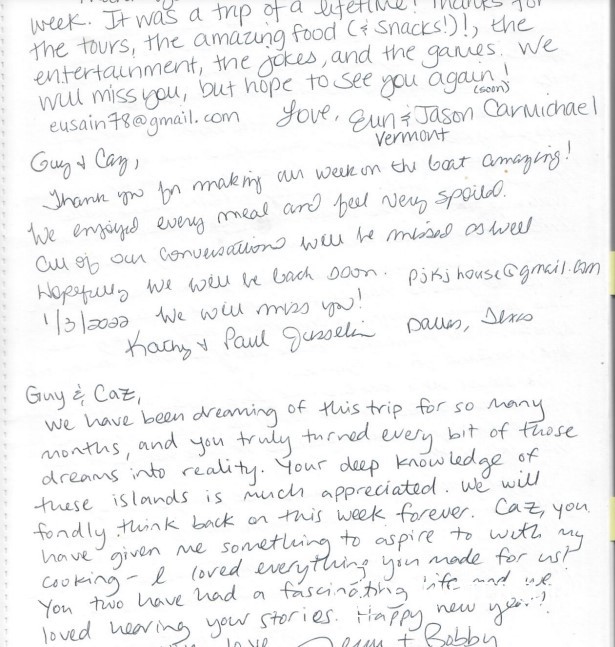 week. It was a trip of a lifetime! Thanks for
the tours, the amazing food (& snacks!)!, the
entertainment, the jokes, and the games. We
will miss you, but hope to see you again!
(soon)
eusain78@gmail.com Love, Erin & Jason Carmichael
Vermont
Guy & Caz,
Thank you for making our week on the boat amazing!
We enjoyed every meal and feel very spoiled.
All of our conversations will be missed as well
Hopefully we will be back soon. pjkjhouse@gmail.com
1/3/2022 We will miss you!
Kathy & Paul
Dallas, Texas
Guy & Caz,
We have been dreaming of this trip for so many
months, and you truly turned every bit of those
dreams into reality. Your deep knowledge of
these islands is much appreciated. We will
fondly think back on this week forever. Caz, you
have given me something to aspire to with my
cooking - I loved everything you made for us!
You two have had a fascinating life and we
loved hearing your stories. Happy new year!
love + Bobby